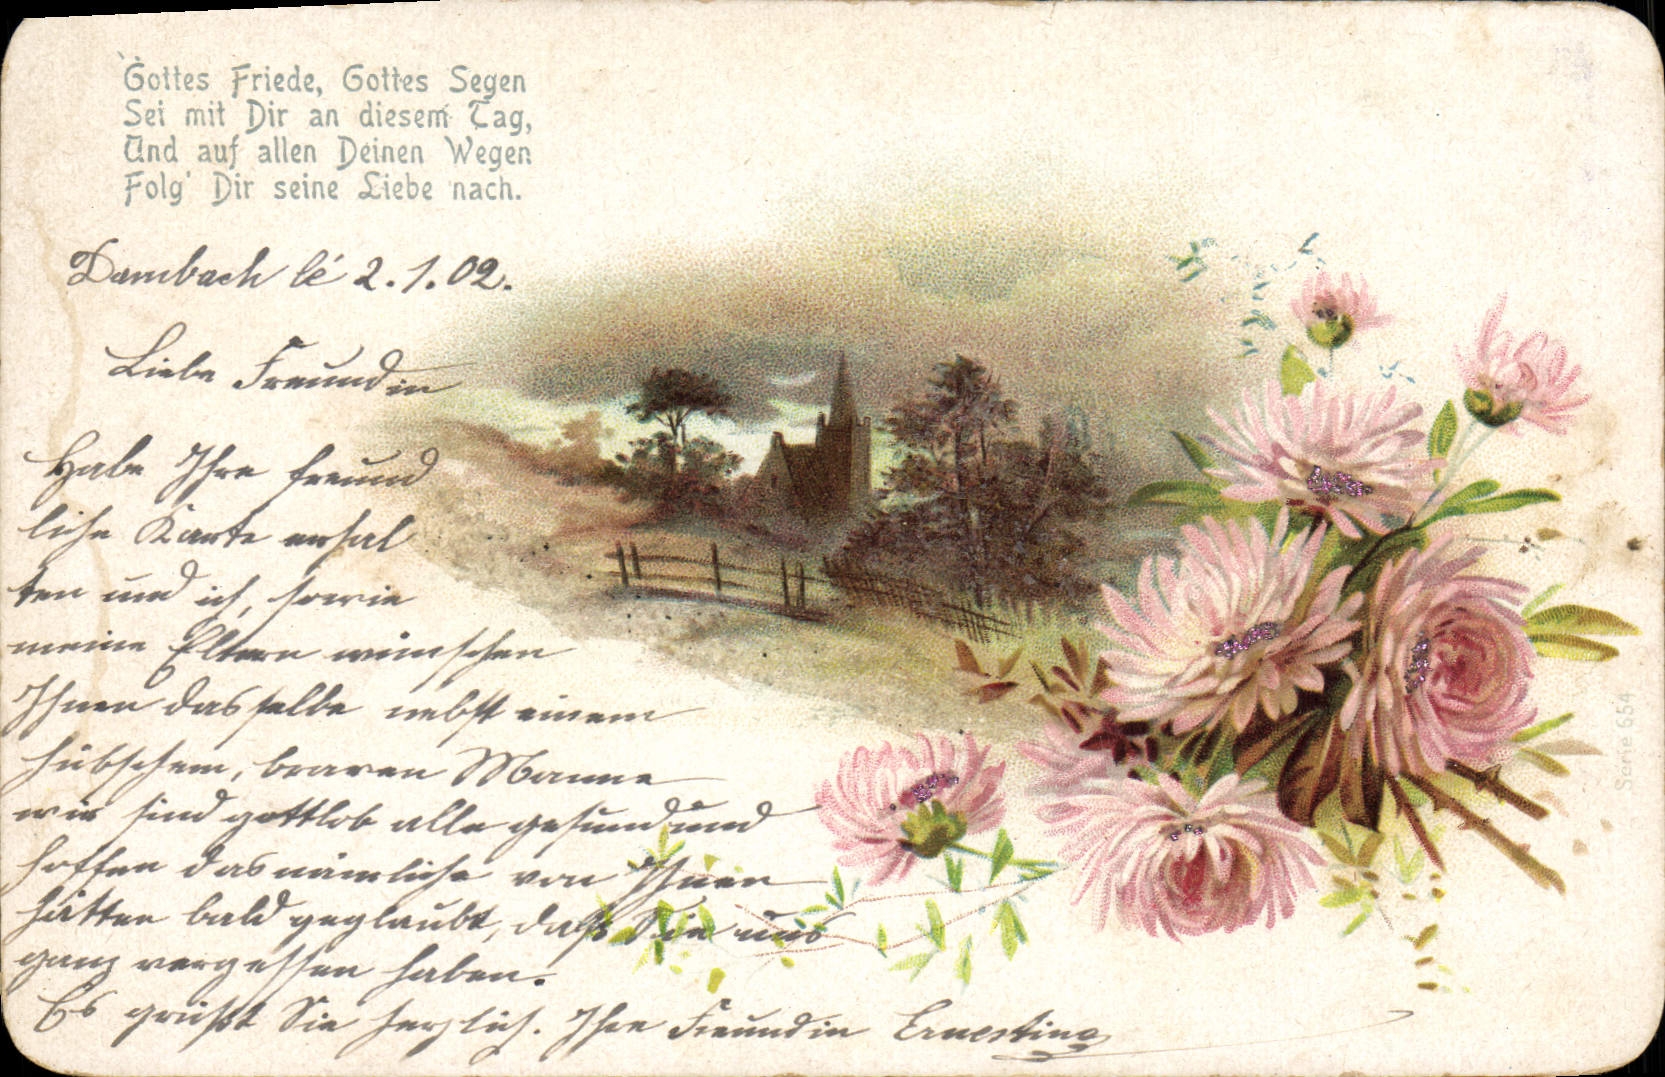 Gottes Friede, Gottes Segen
Sei mit Dir an diesem Tag,
Und auf allen Deinen Wegen
Folg' Dir seine Liebe nach.
Dambach lé 2.1.02.
Liebe Freundin
Habe Ihre freund
liche Karte erhal
ten und ich, sowie
meine Eltern wünschen
Ihnen dasselbe nebst einem
hübschem, braven Manne
wir sind gottlob alle gesund und
hoffen das nämliche von Ihnen
hätten bald geglaubt, daß Sie uns
ganz vergessen haben.
Es grüßt Sie herzlich. Ihre Freundin Ernestine
Serie 654